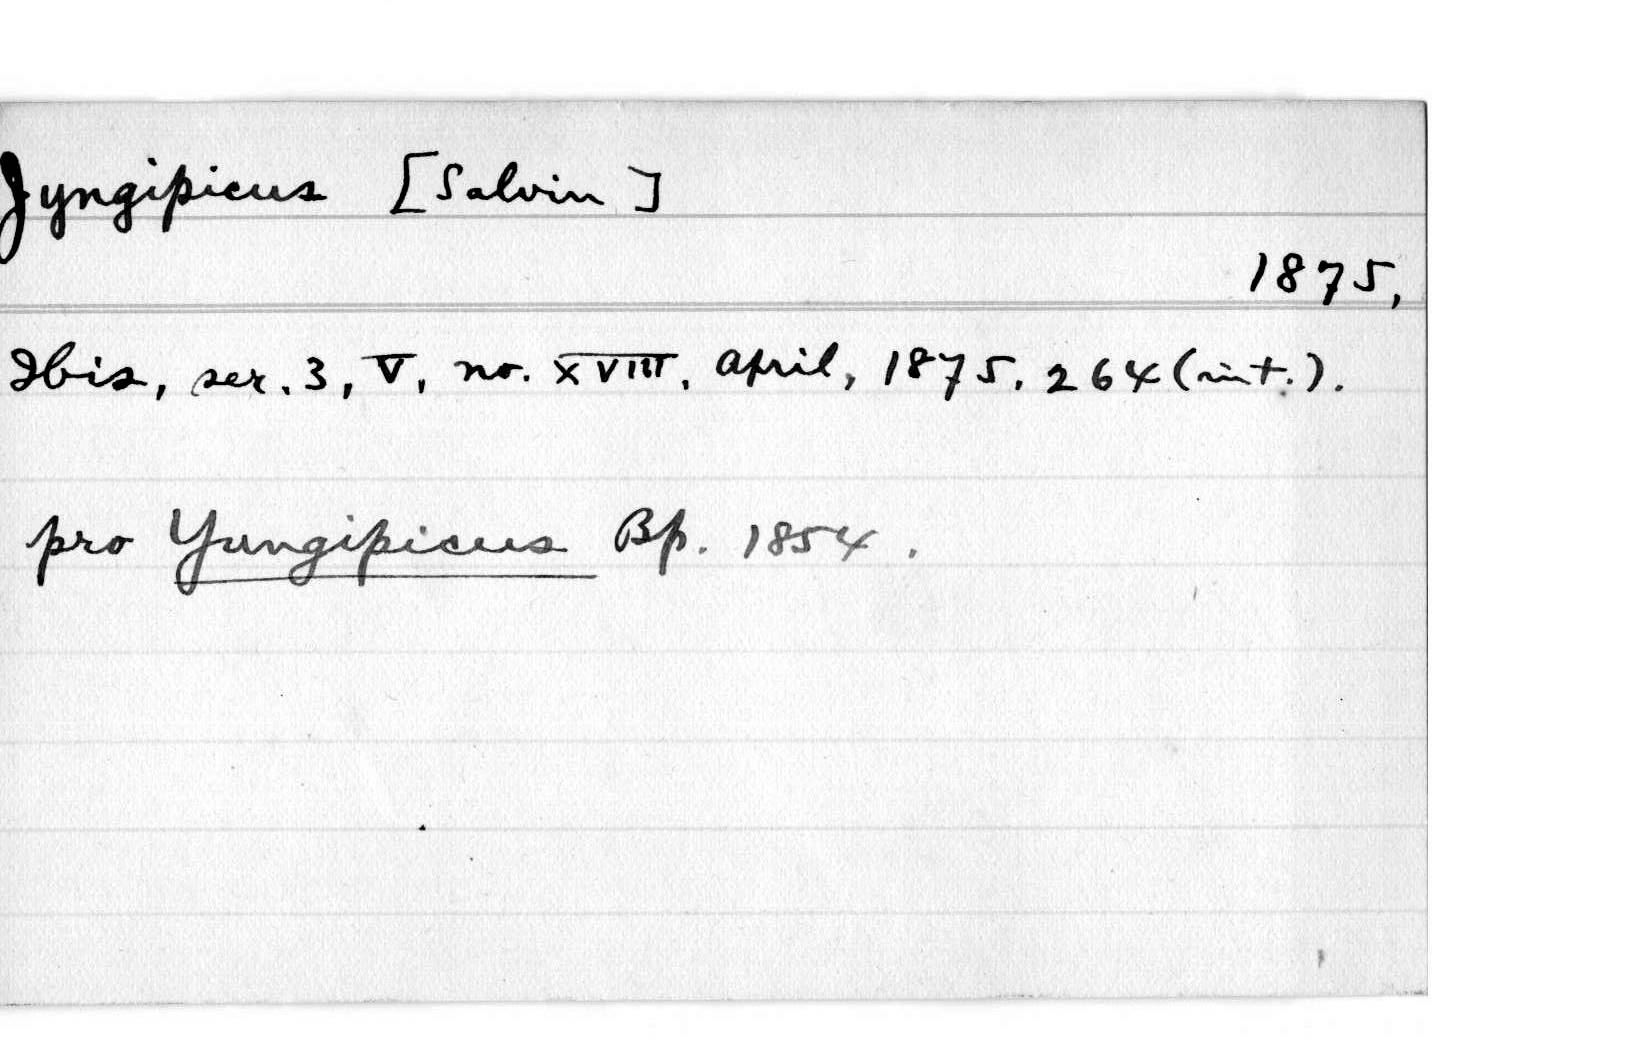 Jyngipicus [Salvin]
1875,
Ibis, ser. 3, V, no. XVIII, April, 1875, 264 (int.).
pro Yungipicus Bp. 1854.